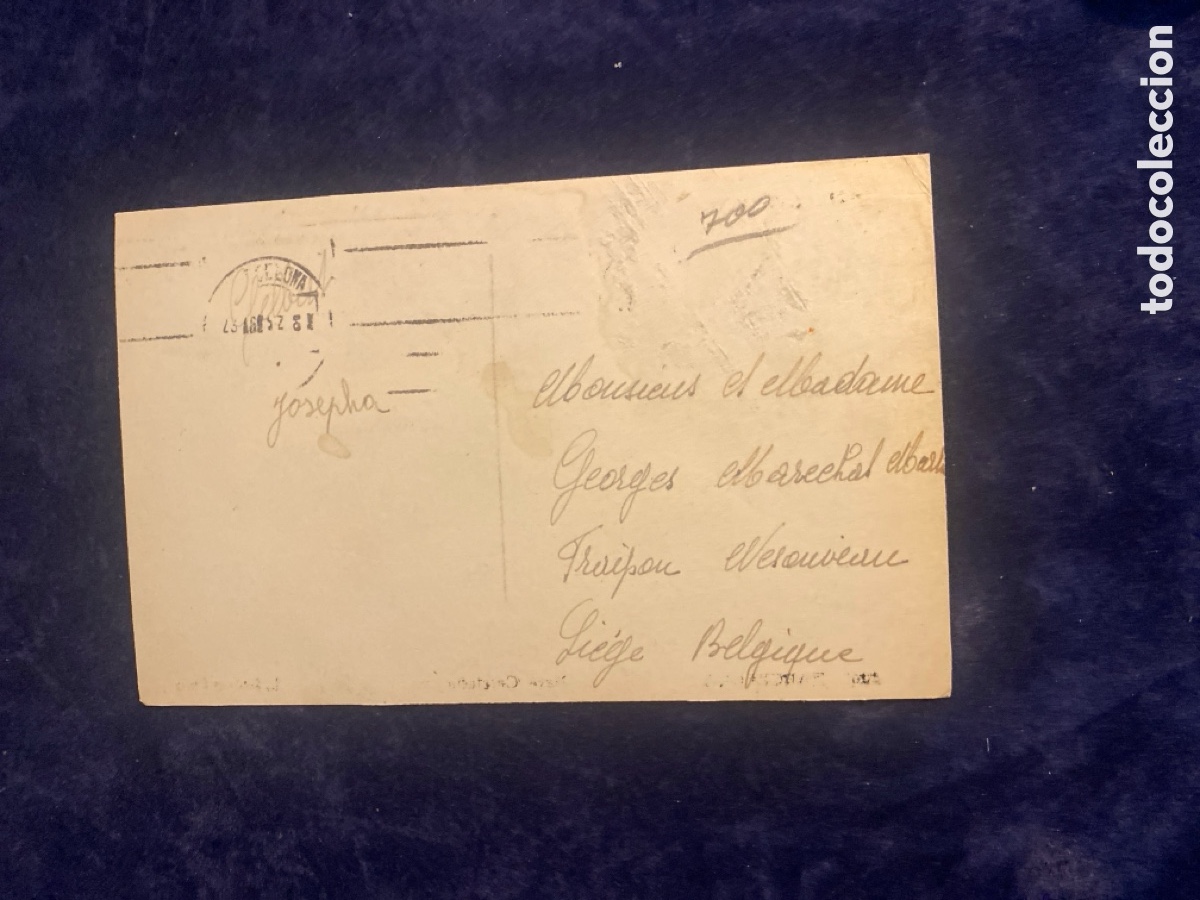 todocoleccion
700
CELONA
Josepha
Monsieus et Madame
Georges Marechal
Fraipon Nesonveau
Liége Belgique